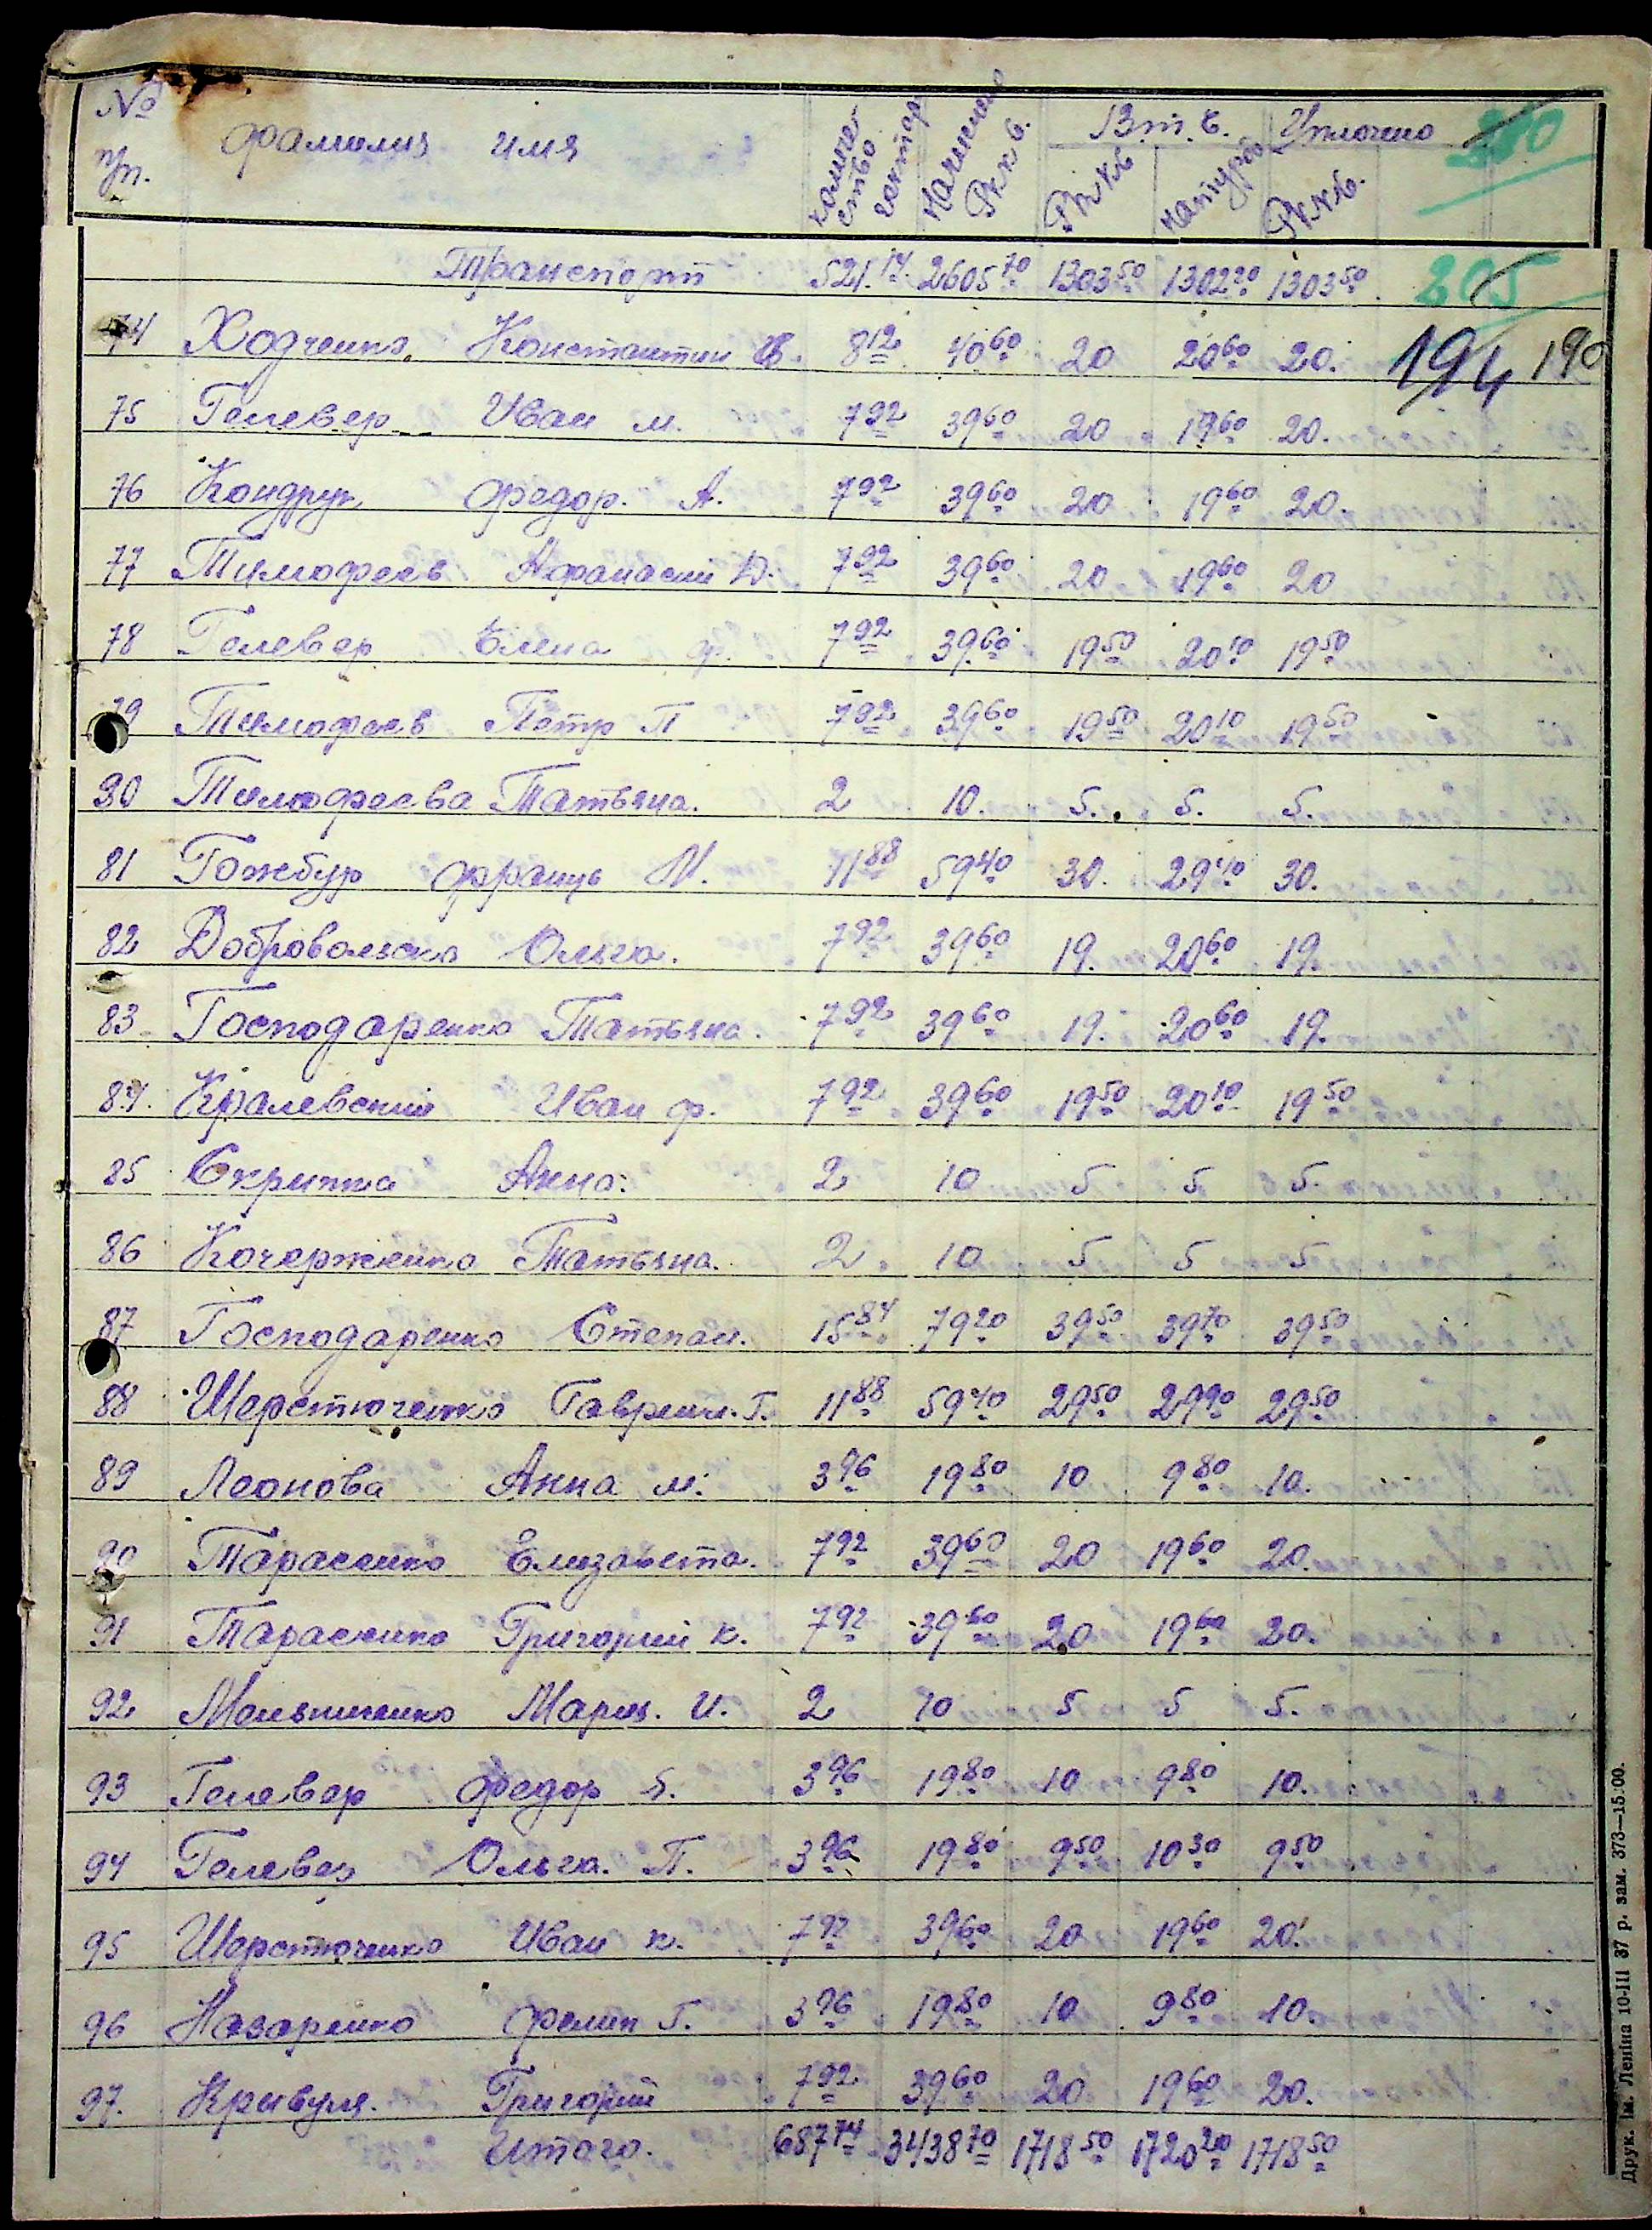 № п/п. фамилия имя количество гектар Начислено Рк к в. В т. ч. Уплочено 210
Рк к в натурой Рк к в.
Транспорт 521.14 2605 70 1303 50 1302 20 1303 50 205
74 Ходченко Константин Ф. 8 12 40 60 20 20 60 20. 194 190
75 Гелевер Иван М. 7 92 39 60 20 19 60 20.
76 Кондрук Федор. А. 7 92 39 60 20 19 60 20.
77 Тимофеев Афанасий Д. 7 92 39 60 20 19 60 20
78 Гелевер Елена Ф. 7 92 39 60 19 50 20 10 19 50
79 Тимофеев Петр П 7 92 39 60 19 50 20 10 19 50
80 Тимофеева Татьяна. 2 10. 5. 5. 5.
81 Гожбур Франц М. 11 88 59 40 30. 29 40 30.
82 Добровольска Ольга. 7 92 39 60 19. 20 60 19.
83 Господаренко Татьяна. 7 92 39 60 19. 20 60 19.
84. Кралевский Иван Ф. 7 92 39 60 19 50 20 10 19 50
85 Скрипка Анна. 2 10 5 5 5.
86 Кочерженко Татьяна. 2. 10 5 5 5
87 Господаренко Степан. 15 84 79 20 39 50 39 70 39 50
88 Шерстюченко Гаврил. Г. 11 88 59 40 29 50 29 90 29 50
89 Леонова Анна М. 3 96 19 80 10 9 80 10.
90 Тарасенко Елизавета. 7 92 39 60 20 19 60 20.
91 Тарасенко Григорий К. 7 92 39 60 20 19 60 20.
92 Мельниченко Мария. И. 2 10 5 5 5.
93 Гелевер Федор Б. 3 96 19 80 10 9 80 10.
94 Гелевер Ольга. П. 3 96 19 80 9 50 10 30 9 50
95 Шерстюченко Иван К. 7 92 39 60 20 19 60 20.
96 Назаренко Филип Г. 3 96 19 80 10 9 80 10.
97. Кривуля. Григорий 7 92 39 60 20 19 60 20.
Итого. 687 74 3438 70 1718 50 1720 20 1718 50
Друк. ім. Леніна 10-III 37 р. зам. 373—15.00.